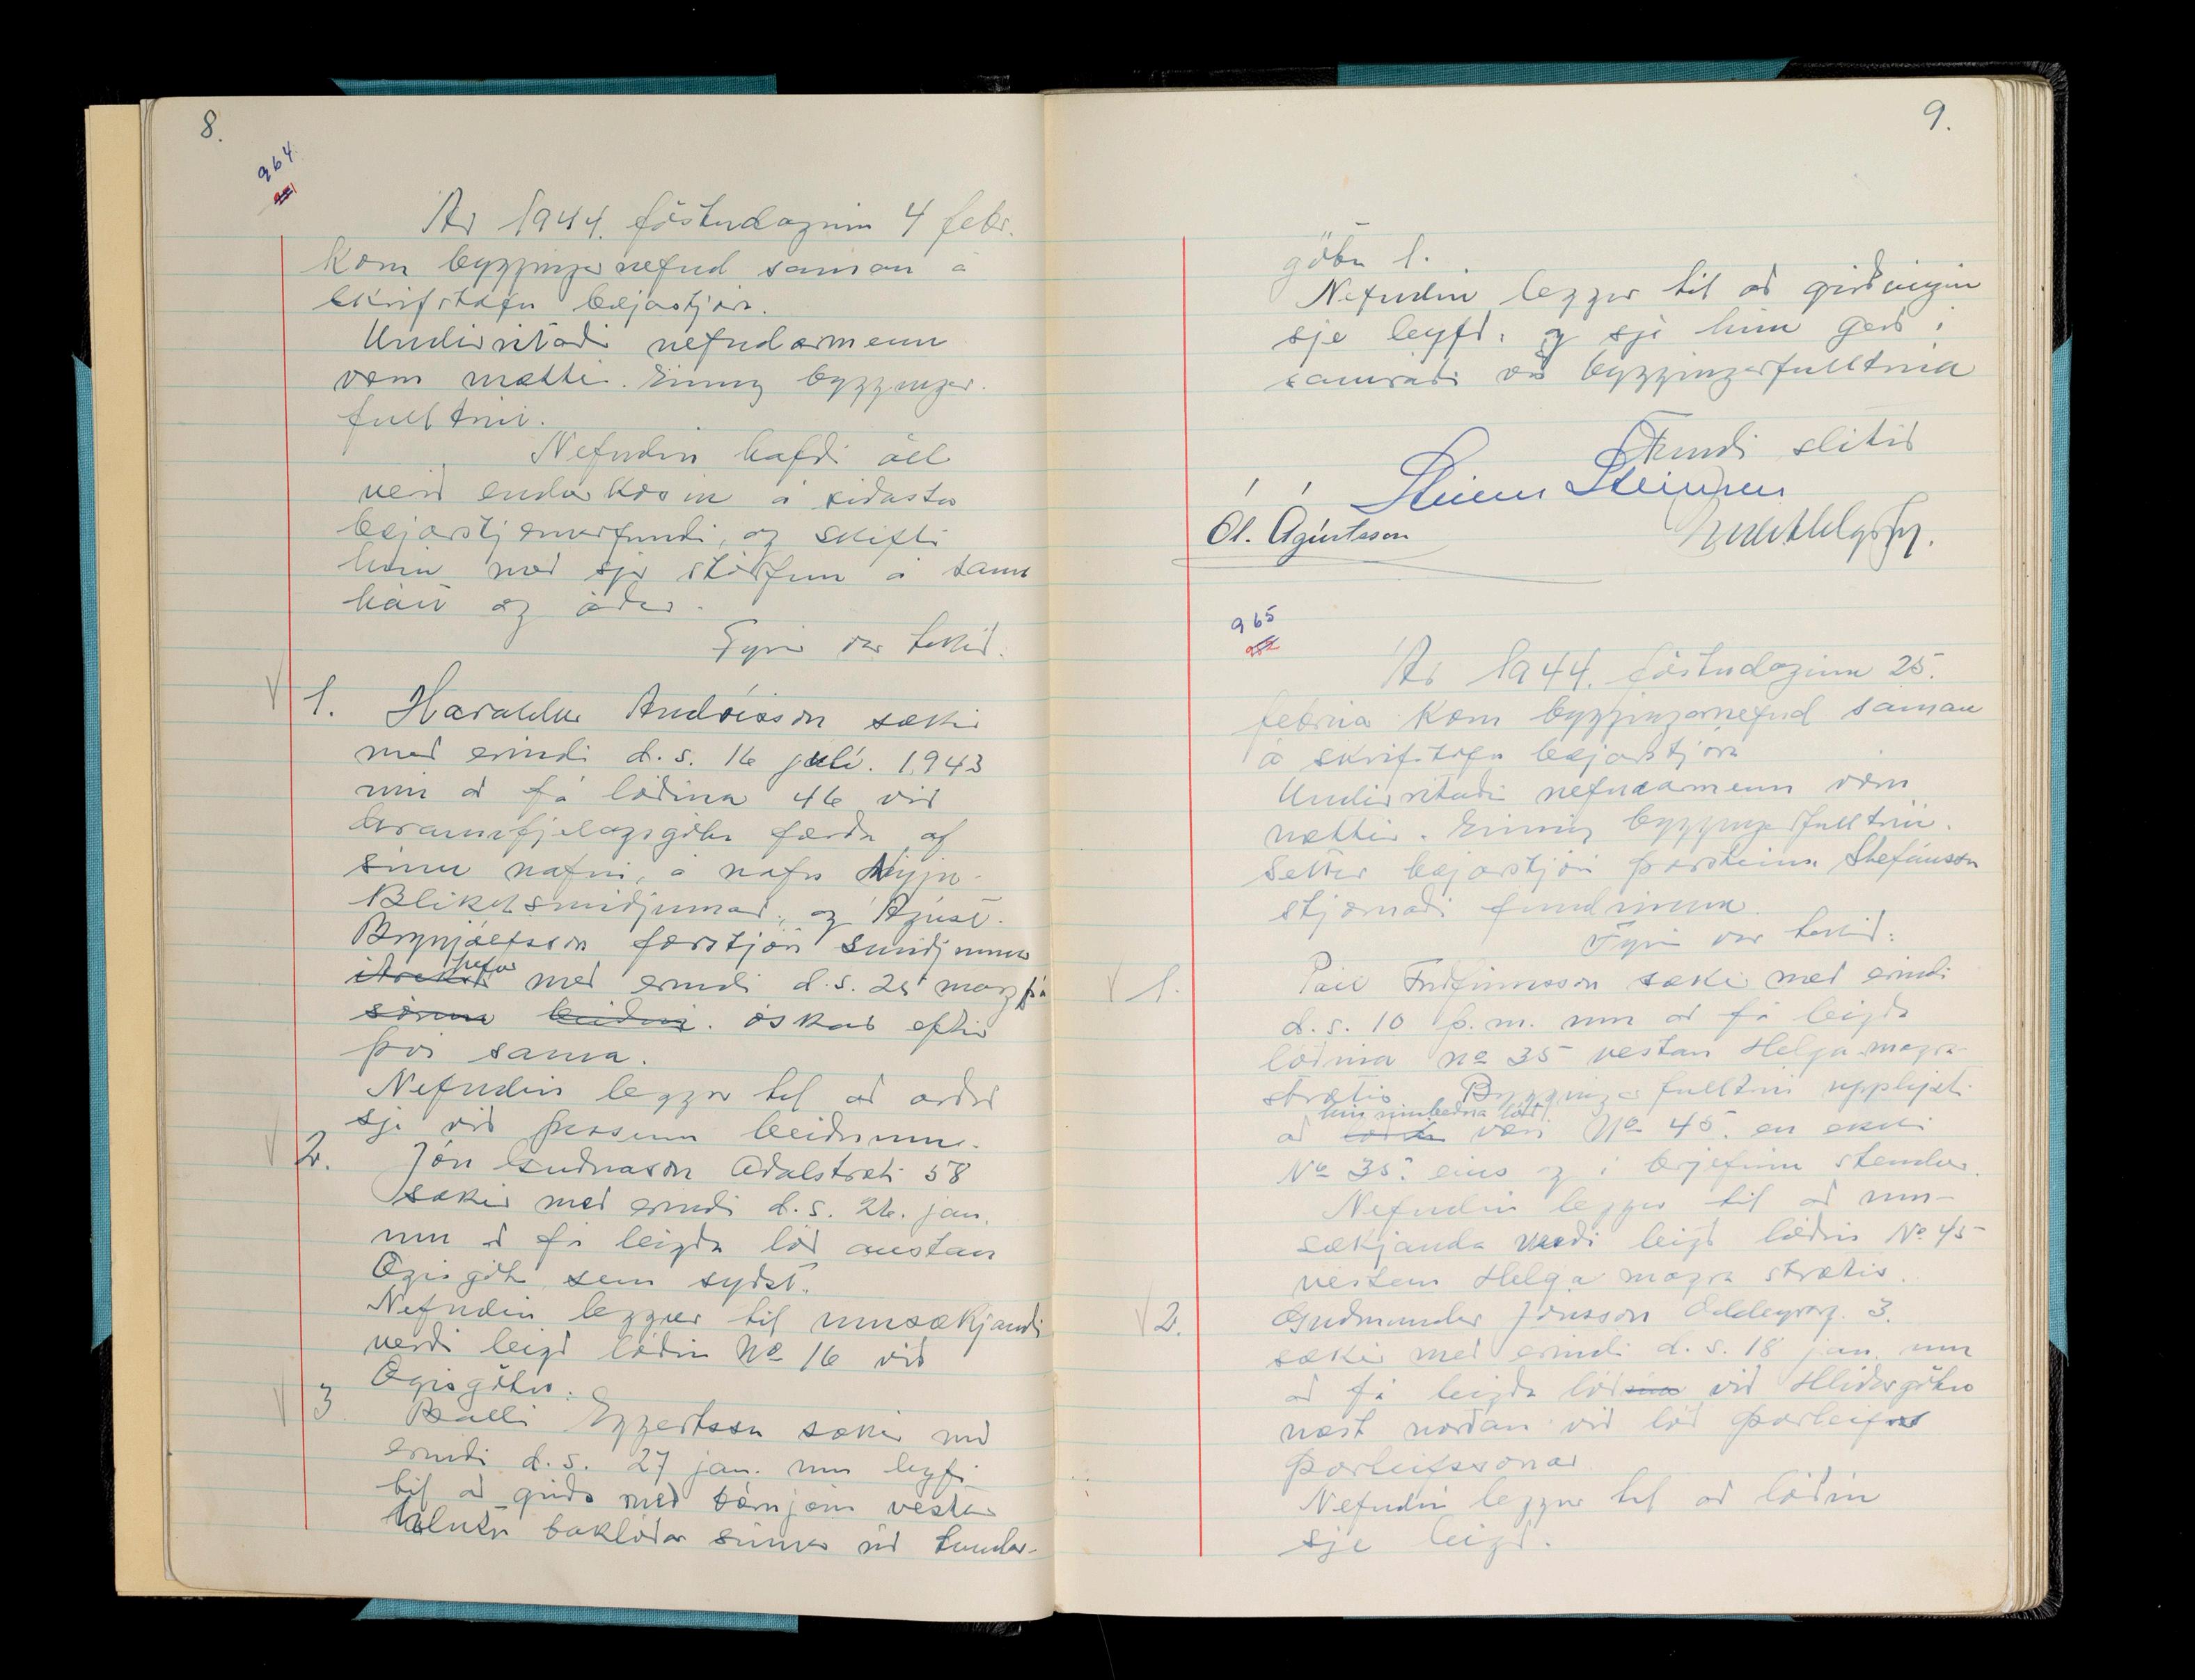 8.
964
Ár 1944. föstudaginn 4 febr.
kom bygginganefnd saman á
skrifstofu bæjarstjóra.
Undirritaðir nefndarmenn
voru mættir. Einnig bygginga-
fulltrúi.
Nefndin hafði öll
verið endurkosin á síðasta
bæjarstjórnarfundi, og skifti
hún með sjer störfum á sama
hátt og áður.
Fyrir var tekið:
1. Haraldur Andrésson sækir
með erindi d.s. 16 júlí. 1943
um að fá lóðina 46 við
Gránufjelagsgötu færða af
sínu nafni, á nafn Nýju-
Blikksmiðjunnar, og Ágúst
Brynjólfsson forstjóri smiðjunnar
hefur með erindi d.s. 25 marz
óskað eftir
því sama.
Nefndin leggur til að orðið
sje við þessum beiðnum.
2. Jón Guðnason Aðalstræti 58
sækir með erindi d.s. 26. jan.
um að fá leigða lóð austan
Ægisgötu sem syðst.
Nefndin leggur til umsækjandi
verði leigð lóðin No 16 við
Ægisgötu.
3 Balli Eggertsson sækir með
erindi d.s. 27 jan. um leyfi
til að girða með bárujárni vestur
hluta baklóðar sinnar við Lundar-
9.
götu 1.
Nefndin leggur til að girðingin
sje leyfð, og sje hún gerð í
samráði við byggingarfulltrúa
Fundi slitið
Steinn Steinsen
Ól. Ágústsson
965
Ár 1944. föstudaginn 25.
febrúar kom bygginganefnd saman
á skrifstofu bæjarstjóra
Undirritaðir nefndarmenn voru
mættir. Einnig byggingafulltrúi.
Settur bæjarstjóri Þorsteinn Stefánsson
stjórnaði fundinum.
Fyrir var tekið:
1. Páll Friðfinnsson sækir með erindi
d.s. 10 þ.m. um að fá leigða
lóðina no 35 vestan Helga-magra-
strætis. Byggingafulltrúi upplýsti
hin umbeðna lóð
að væri No 45. en ekki
No 35. eins og í brjefinu stendur.
Nefndin leggur til að um-
sækjanda verði leigð lóðin No 45
vestan Helga magra strætis.
2. Guðmundur Jónsson Oddeyrarg. 3.
sækir með erindi d.s. 18 jan. um
að fá leigða lóð við Hlíðargötu
næst norðan við lóð Þorleifs
Þorleifssonar
Nefndin leggur til að lóðin
sje leigð.